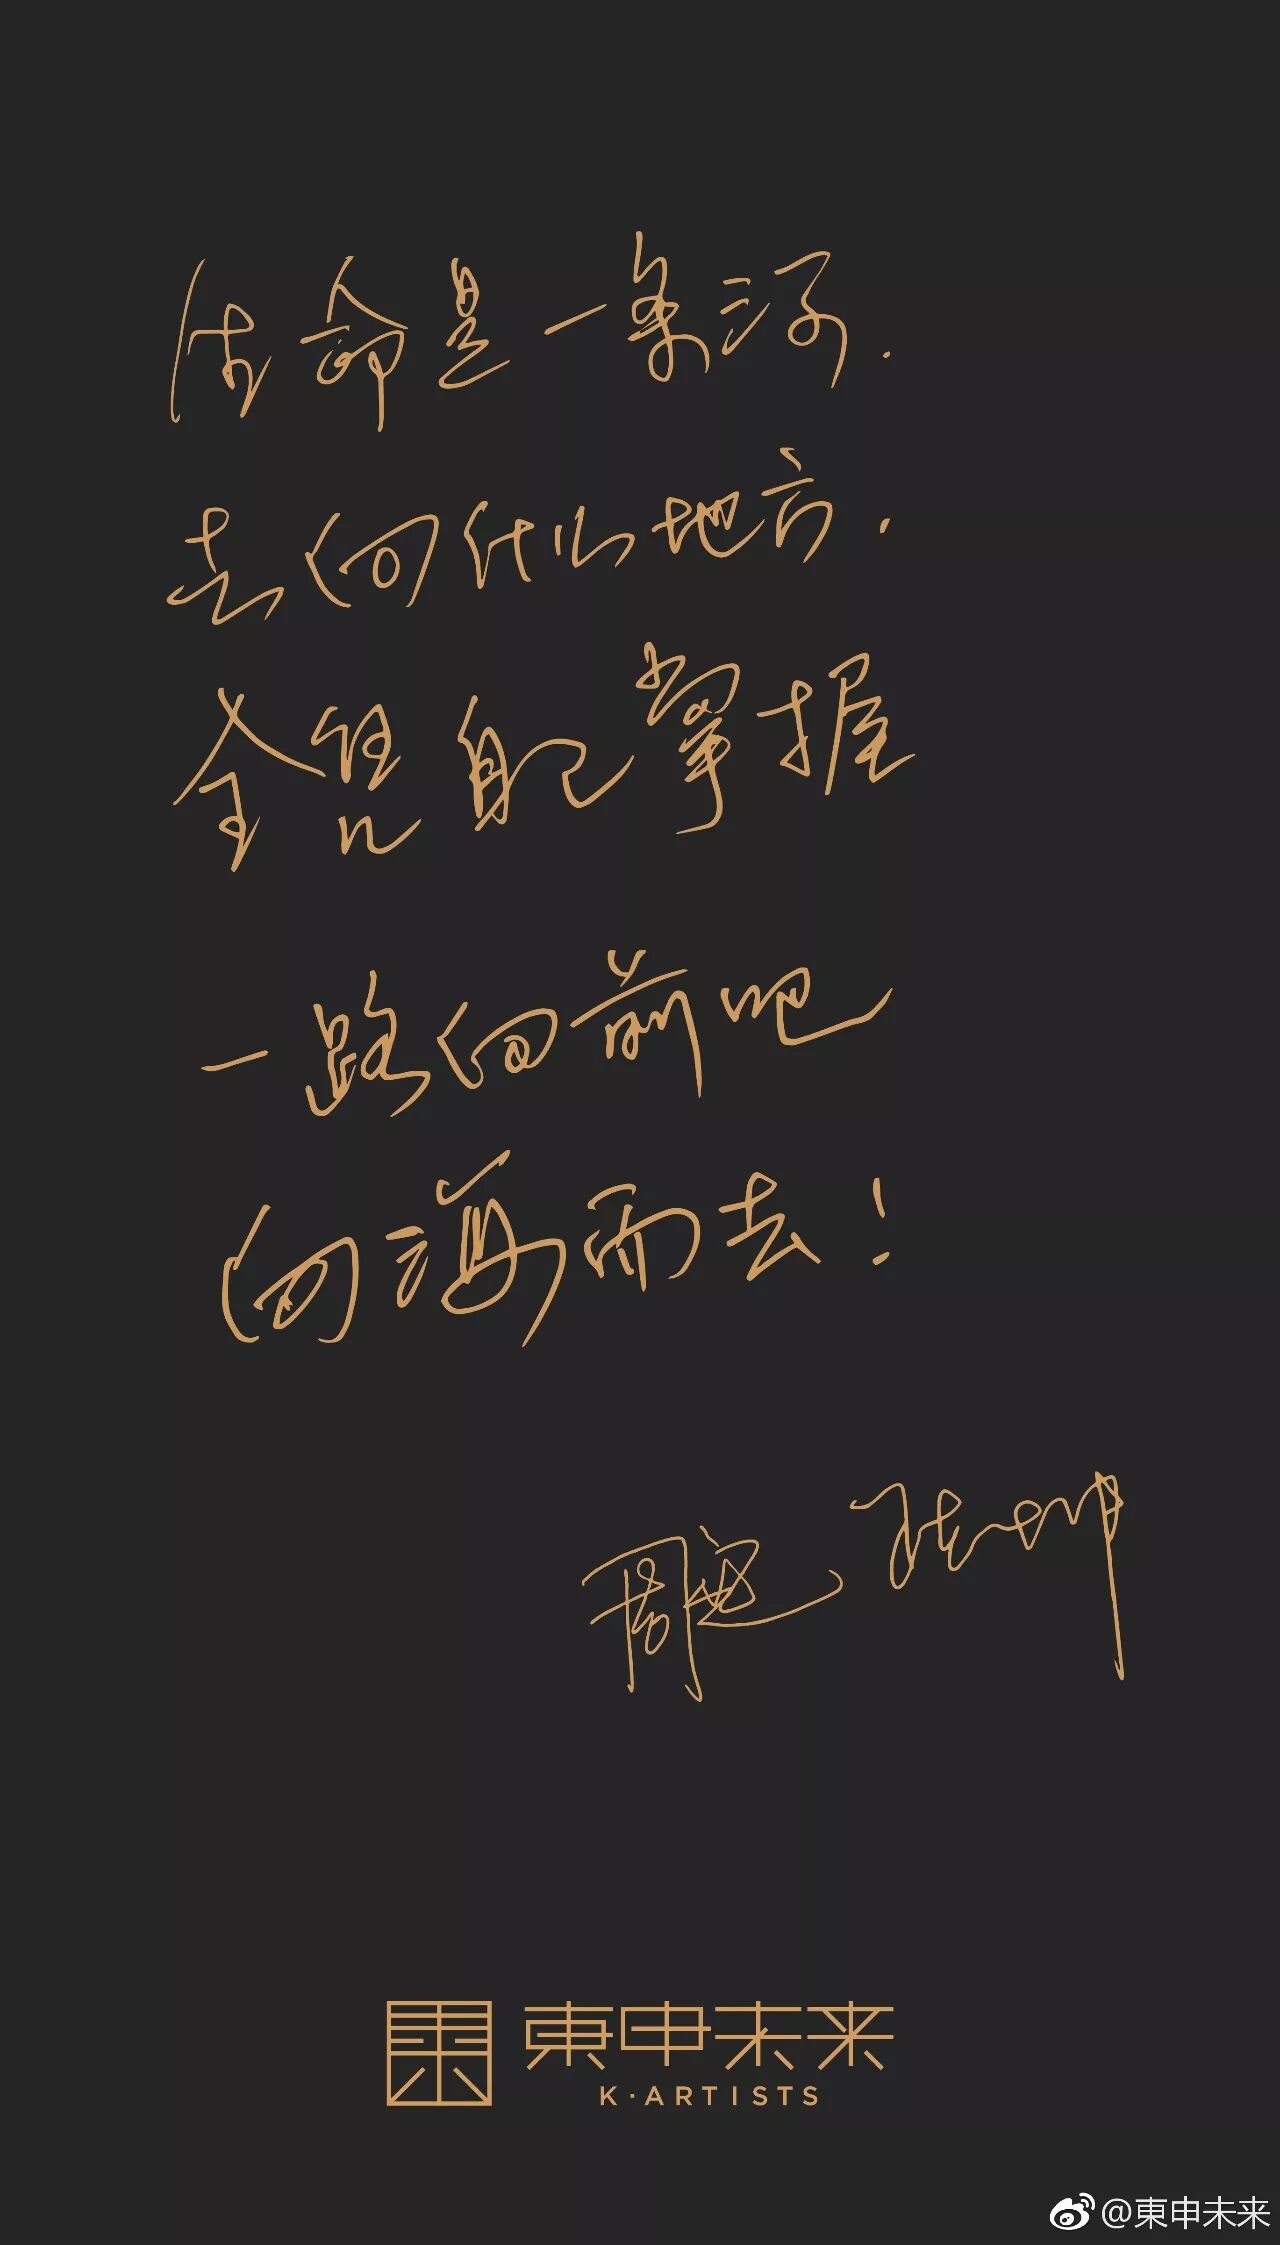 命是一条河.
去向什么地方.
全凭自己掌握
一路向前吧
向海而去!
周迅、陈坤
東申未来
K·ARTISTS
@東申未来